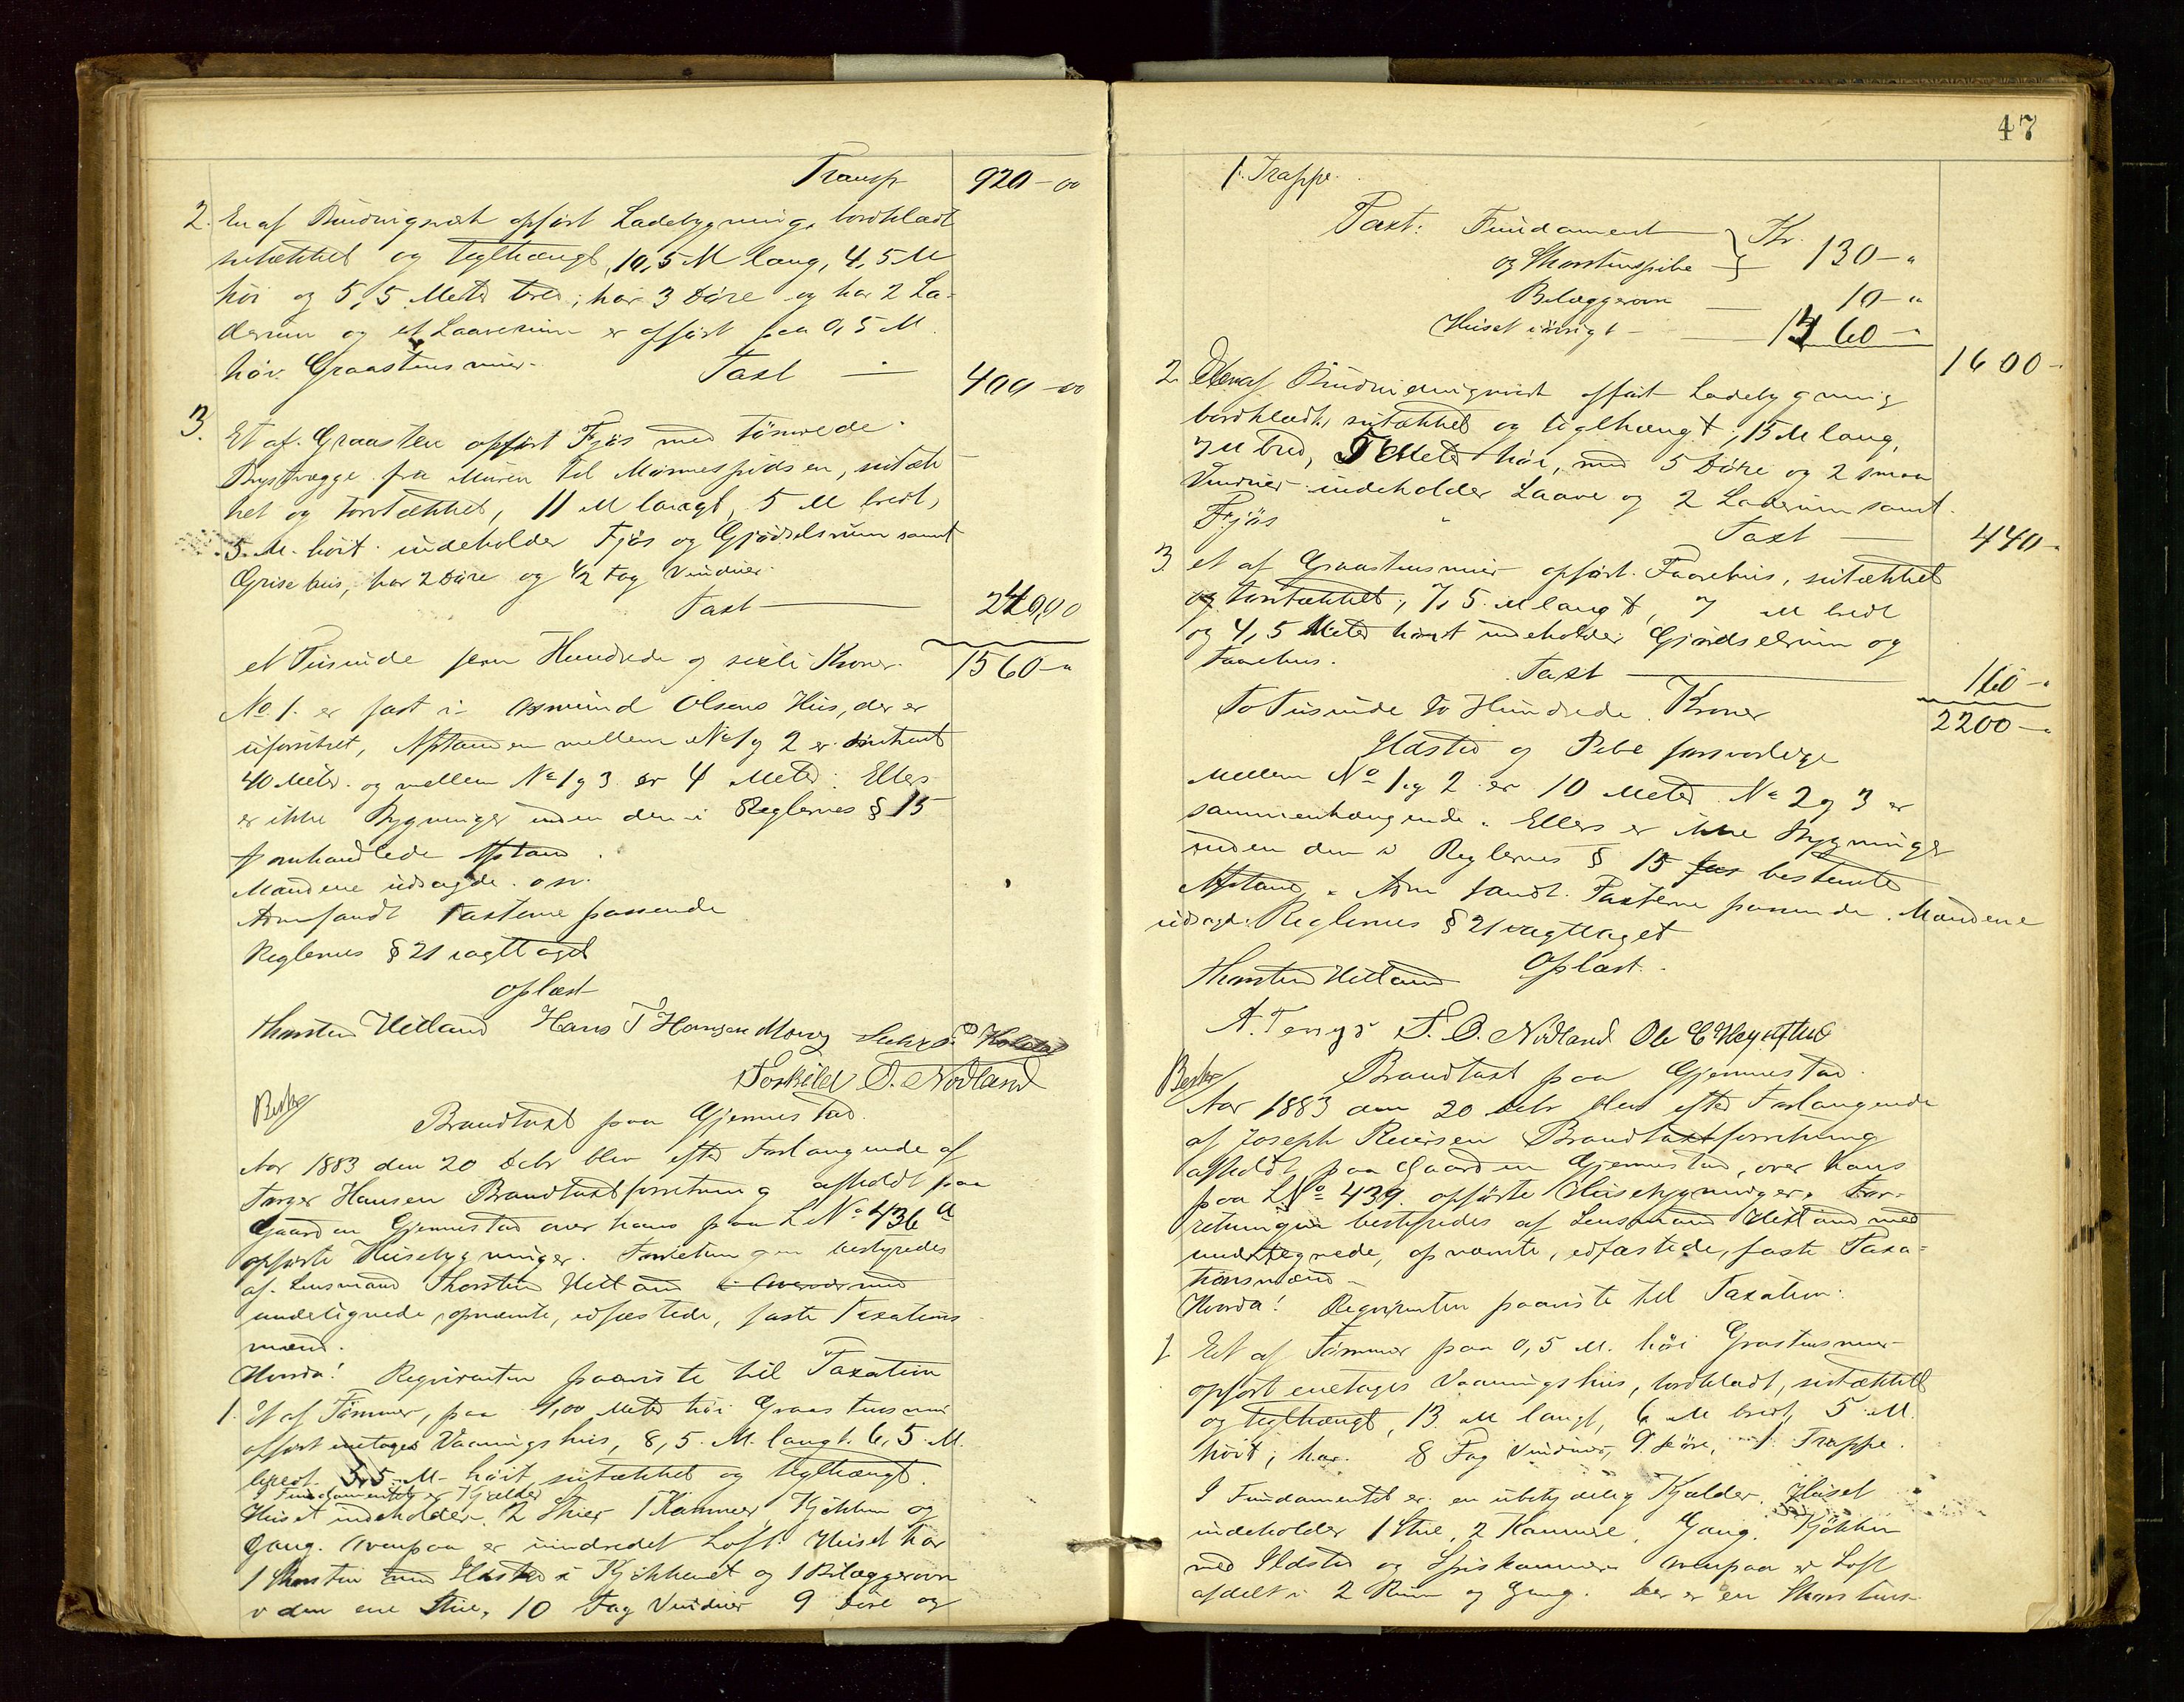 Transp 920-00
2. En af Bindingsværk opført Ladebygning, bordklædt
sutækket og teglhængt, 10,5 M lang, 4,5 M
höi og 5,5 Meter bred; har 3 Döre og har 2 La-
derum og et Laaverum er opført paa 0,5 M
höi Graastensmur. Taxt - 400-00
3. Et af Graasten opført Fjös med tömrede
Brystvægge fra Muren til Mönnespidsen, sutæk
ket og torvtækket, 11 M langt, 5 M bredt,
5. M. höit indeholder Fjös og Gjödselsrum samt
Grisehus, har 2 Döre og 1/2 Fag Vinduer.
Taxt 240,00
et Tusinde fem Hundrede og sexti Kroner. 1560-"
No 1. er fast i Asmund Olsens Hus, der er
uforsikret, Afstanden mellem No 1 og 2 er omtrent
40 Meter. og mellem No 1 og 3 er 4 Meter. Ellers
er ikke Bygninger inden den i Reglernes § 15
omhandlede Afstand.
Mændene udsagde. o sv.
fandt Taxterne passende
Reglernes § 21 iagttaget
Oplæst
Thorsten Hetland Hans T Hansen
Torkild O. Nödland
Brandtaxt paa Gjennestad.
Aar 1883 den 20 Debr blev efter Forlangende af
Torger Hansen Brandtaxtforretning afholdt paa
Gaarden Gjennestad over hans paa L No 436 a
opförte Husebygninger. Forretningen bestyredes
af Lensmand Thorsten Hetland med
undertegnede, opnævnte, edfæstede, faste Taxations
mænd.
Hvorda! Reqvirenten paaviste til Taxation
1. Et af Tömmer, paa 1,00 Meter höi Graastensmur
opført enetages Vaaningshus, 8,5. M. langt. 6,5 M.
bredt 5,5 M- höit, sutækket og teglhængt.
I Fundamentet er Kjelder
Huset indeholder. 2 Stuer 1 Kammer, Kjökken og
Gang. Ovenpaa er uindredet Loft. Huset har
1 Skorsten med Ildsted i Kjökkenet og 1 Bilæggerovn
i den ene Stue, 10 Fag Vinduer 9 Döre og
47
1 Trappe.
Taxt: Fundament Kr.
og Skorstenspibe 130-"
Bilæggerovn 10-"
Huset iövrigt 1460-" 1600-
2. En af Bindingsværk opført Ladebygning
bordklædt, sutækket og teglhængt, 15 M lang,
7 M bred, 5 Meter höi, med 5 Döre og 2 smaa
Vinduer indeholder Laave og 2 Laderum samt
Fjös Taxt 440-
3. et af Graastensmur opført Faarehus, sutækket
og torvtækket, 7,5 M langt, 7 M bredt
og 4,5 Meter höit indeholder Gjödselrum og
Faarehus. Taxt 160-"
To Tusinde to Hundrede Kroner 2200-"
Ildsted og Pibe forsvarlige
Mellem No 1 og 2 er 10 Meter No 2 og 3 er
sammenhængende. Ellers er ikke Bygninger
inden den i Reglernes § 15 bestemte
Afstand. fandt Taxterne passende. Mændene
udsagde. Reglernes § 21 iagttaget
Thorsten Hetland Oplæst.
T. O. Nödland Ole E
Brandtaxt paa Gjennestad.
Aar 1883 den 20 Debr blev efter Forlangende
af Joseph Reiersen Brandtaxtforretning
afholdt paa Gaarden Gjennestad, over hans
paa L No 439 opförte Husebygninger. For-
retningen bestyredes af Lensmand Hetland med
undertegnede, opnævnte, edfæstede, faste Taxa-
tionsmænd.
Hvorda! Reqvirenten paaviste til Taxation.
1 Et af Tömmer paa 0,5 M. höi Graastensmur
opført enetages Vaaningshus, bordklædt, sutækket
og teglhængt, 13 M langt, 6 M bredt 5 M.
höit; har 8 Fag Vinduer, 9 Döre, 1 Trappe.
I Fundamentet er en ubetydelig Kjælder. Huset
indeholder 1 Stue, 2 Kammere, Gang, Kjökken
med Ildsted og Spiskammer ovenpaa er Loft
afdelt i 2 Rum og Gang. Der er en Skorstens-